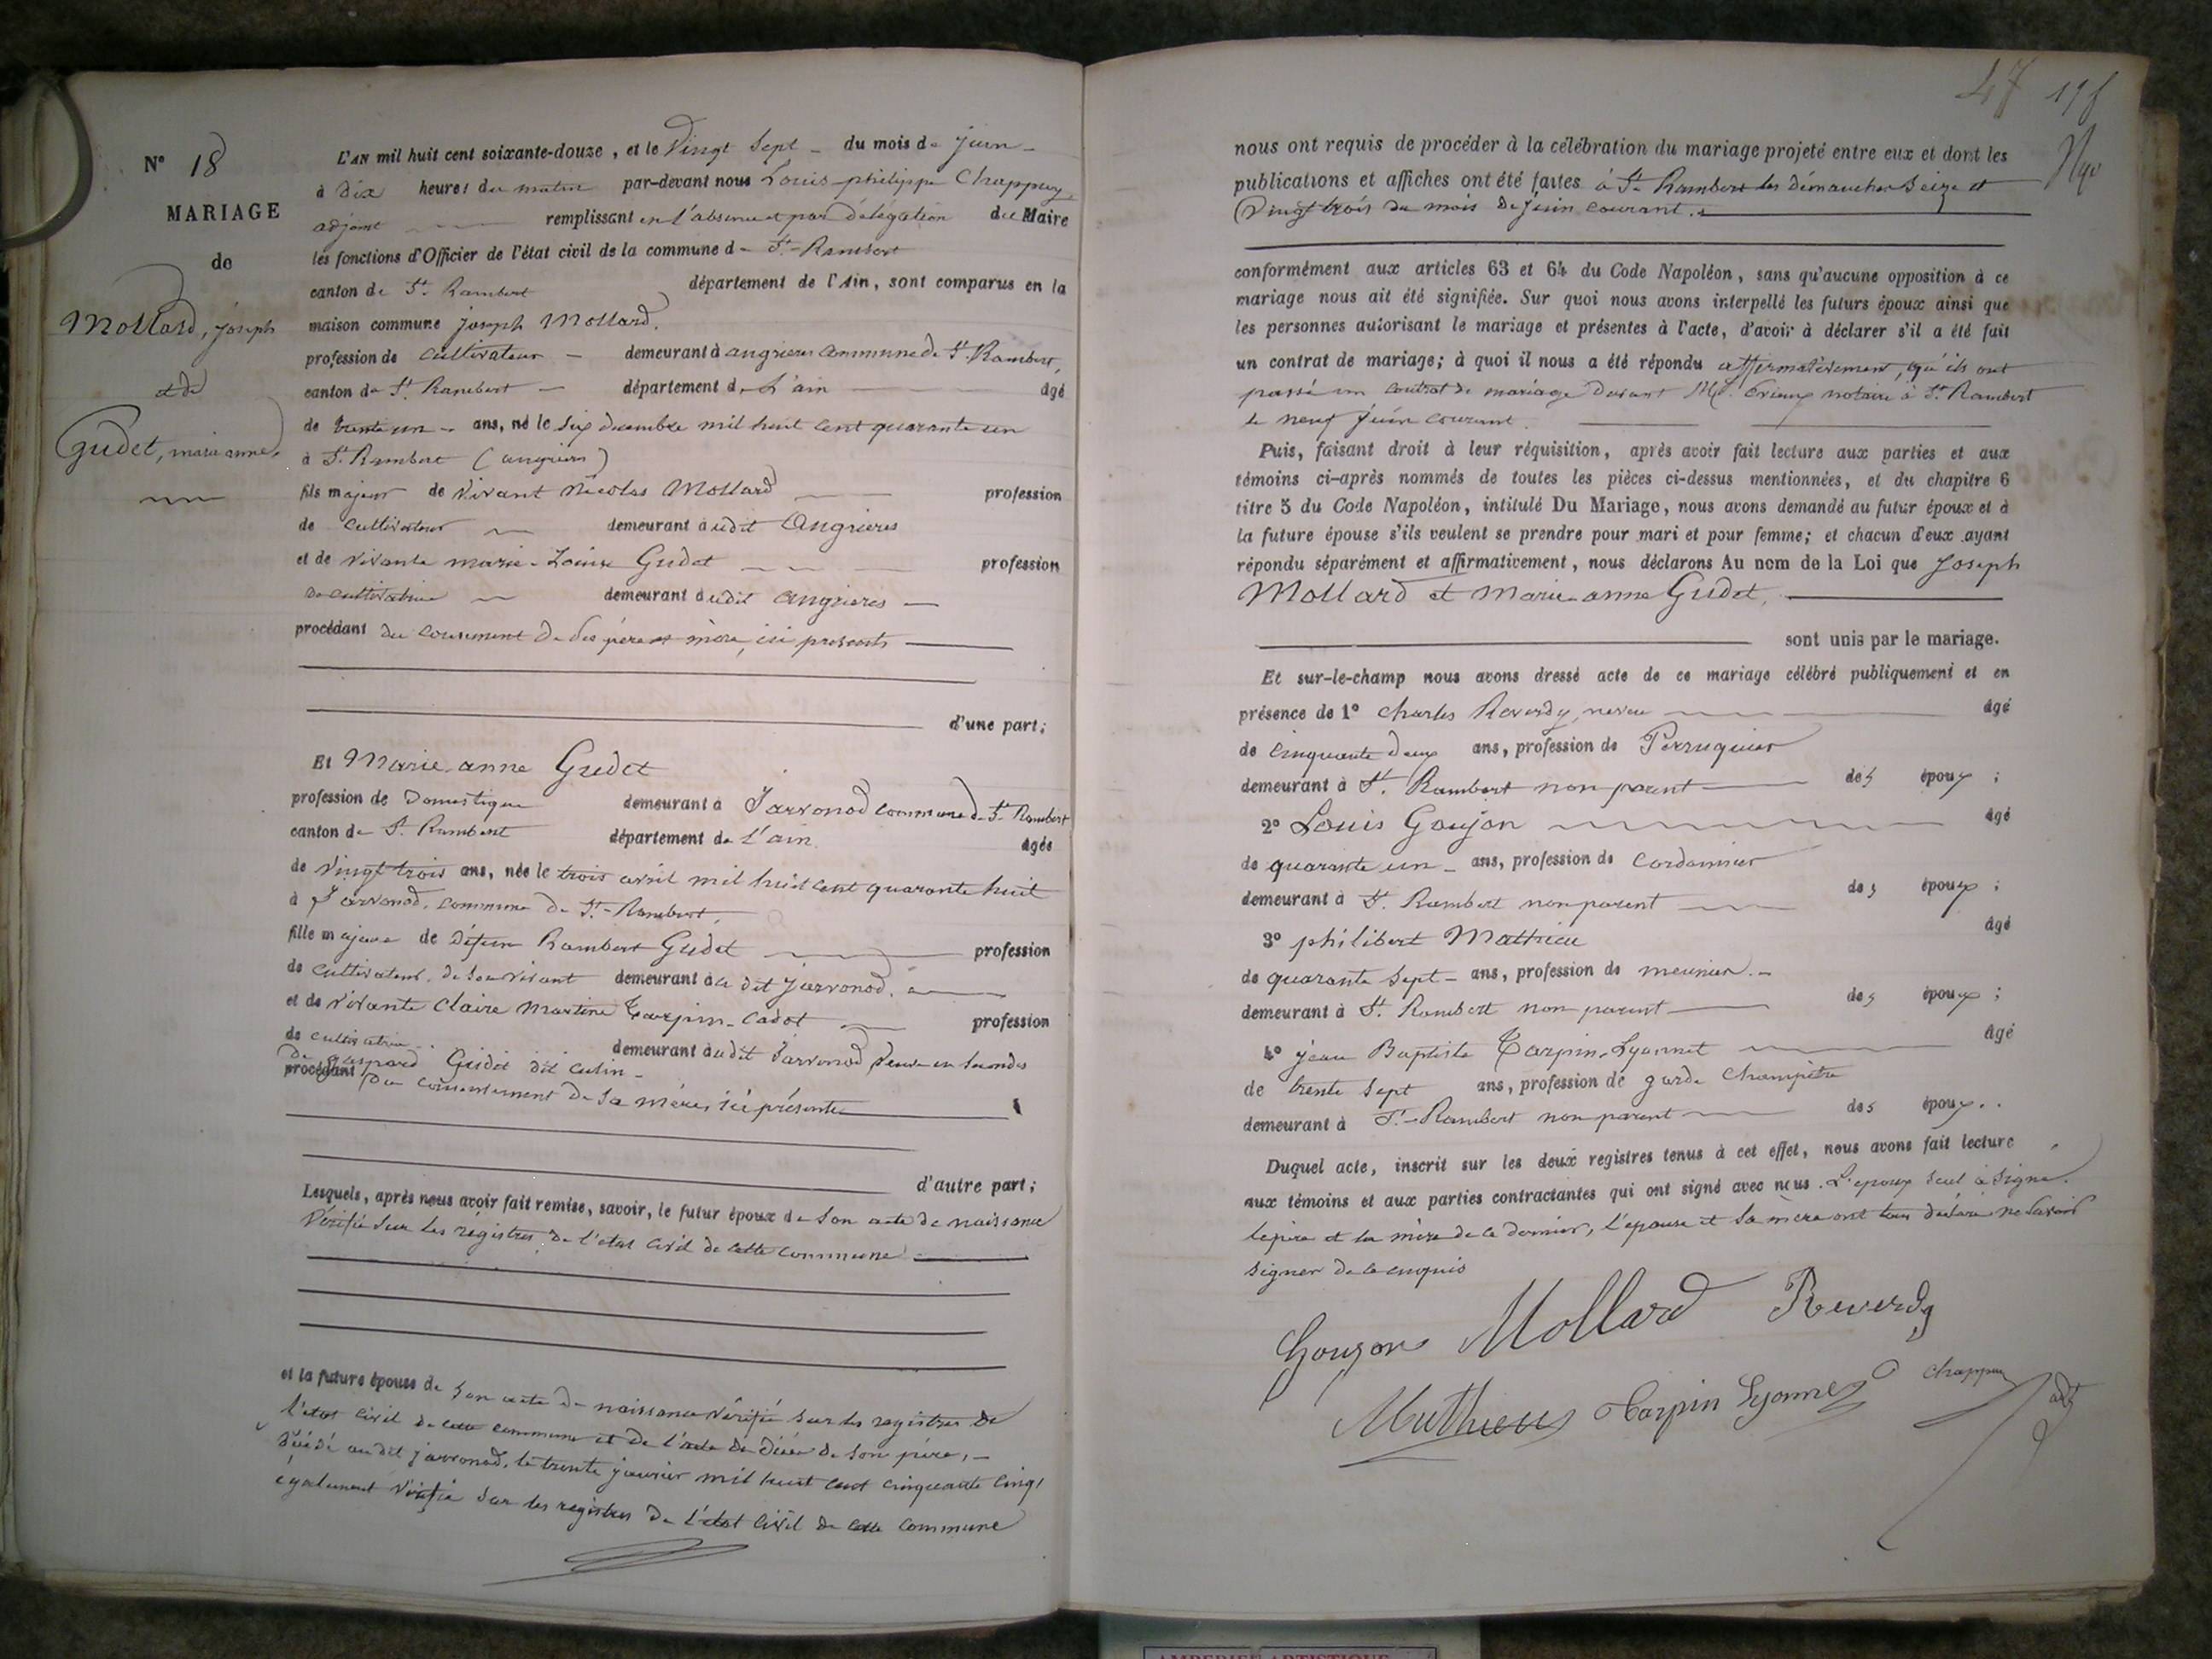 N° 18
MARIAGE
de
Mollard, joseph
et de
Gudet, marie anne.
L'AN mil huit cent soixante-douze, et le Vingt Sept du mois de Juin
à Dix heures du matin par-devant nous Louis philippe Chappuy
adjoint remplissant en l'absence et par délégation du Maire
les fonctions d'Officier de l'état civil de la commune de St-Rambert
canton de St. Rambert département de l'Ain, sont comparus en la
maison commune joseph Mollard.
profession de cultivateur demeurant à angrieres commune de St. Rambert,
canton de St Rambert département de L'ain âgé
de trente un ans, né le six decembre mil huit cent quarante un
à St. Rambert (angrieres)
fils majeur de Vivant Nicolas Mollard profession
de cultivateur demeurant audit Angrieres
et de vivante marie-Louise Gudet profession
de cultivatrice demeurant audit angrieres
procédant du consement de ses père et mère, ici présents
d'une part;
Et Marie-anne Gudet
profession de Domestique demeurant à Javronod commune de St Rambert
canton de St. Rambert département de L'ain âgée
de vingt trois ans, née le trois avril mil huit cent quarante huit
à Javronod, commune de St-Rambert,
fille majeure de défunt Rambert Gudet profession
de cultivateur, de son vivant demeurant au dit Javronod,
et de vivante Claire Martine Tarpin-Cadot profession
de cultivatrice demeurant audit Javronod veuve en secondes
de gaspard Gudet dit cutin
procédant du consentement de sa mère, ici présente
d'autre part;
Lesquels, après nous avoir fait remise, savoir, le futur époux de son acte de naissance
Vérifié sur les régistres de l'etat civil de cette commune
et la future épouse de son acte de naissance vérifié sur les registres de
l'etat civil de cette commune et de l'acte de décès de son père,
décédé audit javronod, le trente janvier mil huit cent cinquante cinq,
également vérifié sur les registres de l'etat civil de cette commune
47
nous ont requis de procéder à la célébration du mariage projeté entre eux et dont les
publications et affiches ont été faites à St. Rambert les dimanches Seize et
Vingt trois du mois de juin courant.
conformément aux articles 63 et 64 du Code Napoléon, sans qu'aucune opposition à ce
mariage nous ait été signifiée. Sur quoi nous avons interpellé les futurs époux ainsi que
les personnes autorisant le mariage et présentes à l'acte, d'avoir à déclarer s'il a été fait
un contrat de mariage; à quoi il nous a été répondu affirmativement, qu'ils ont
passé un contrat de mariage devant Me. notaire à St. Rambert
le neuf juin courant.
Puis, faisant droit à leur réquisition, après avoir fait lecture aux parties et aux
témoins ci-après nommés de toutes les pièces ci-dessus mentionnées, et du chapitre 6
titre 5 du Code Napoléon, intitulé Du Mariage, nous avons demandé au futur époux et à
la future épouse s'ils veulent se prendre pour mari et pour femme; et chacun d'eux ayant
répondu séparément et affirmativement, nous déclarons Au nom de la Loi que Joseph
Mollard et Marie-anne Gudet,
sont unis par le mariage.
Et sur-le-champ nous avons dressé acte de ce mariage célébré publiquement et en
présence de 1° charles Reverdy, neveu âgé
de cinquante deux ans, profession de Perruquier
demeurant à St. Rambert non parent des époux;
2° Louis Goujon âgé
de quarante un ans, profession de Cordonnier
demeurant à St. Rambert non parent des époux;
3° philibert Mathieu âgé
de quarante sept ans, profession de meunier.
demeurant à St. Rambert non parent des époux;
4° jean Baptiste Tarpin-Lyonnet âgé
de trente sept ans, profession de garde champêtre
demeurant à St-Rambert non parent des époux.
Duquel acte, inscrit sur les deux registres tenus à cet effet, nous avons fait lecture
aux témoins et aux parties contractantes qui ont signé avec nous. L'epoux seul a signé.
le père et la mère de ce dernier, l'épouse et sa mère ont tous déclaré ne savoir
signer de ce enquis
Goujon Mollard Reverdy
Mathieu Tarpin Lyonnet Chappuy adjt
AMBERIEU ARTISTIQUE